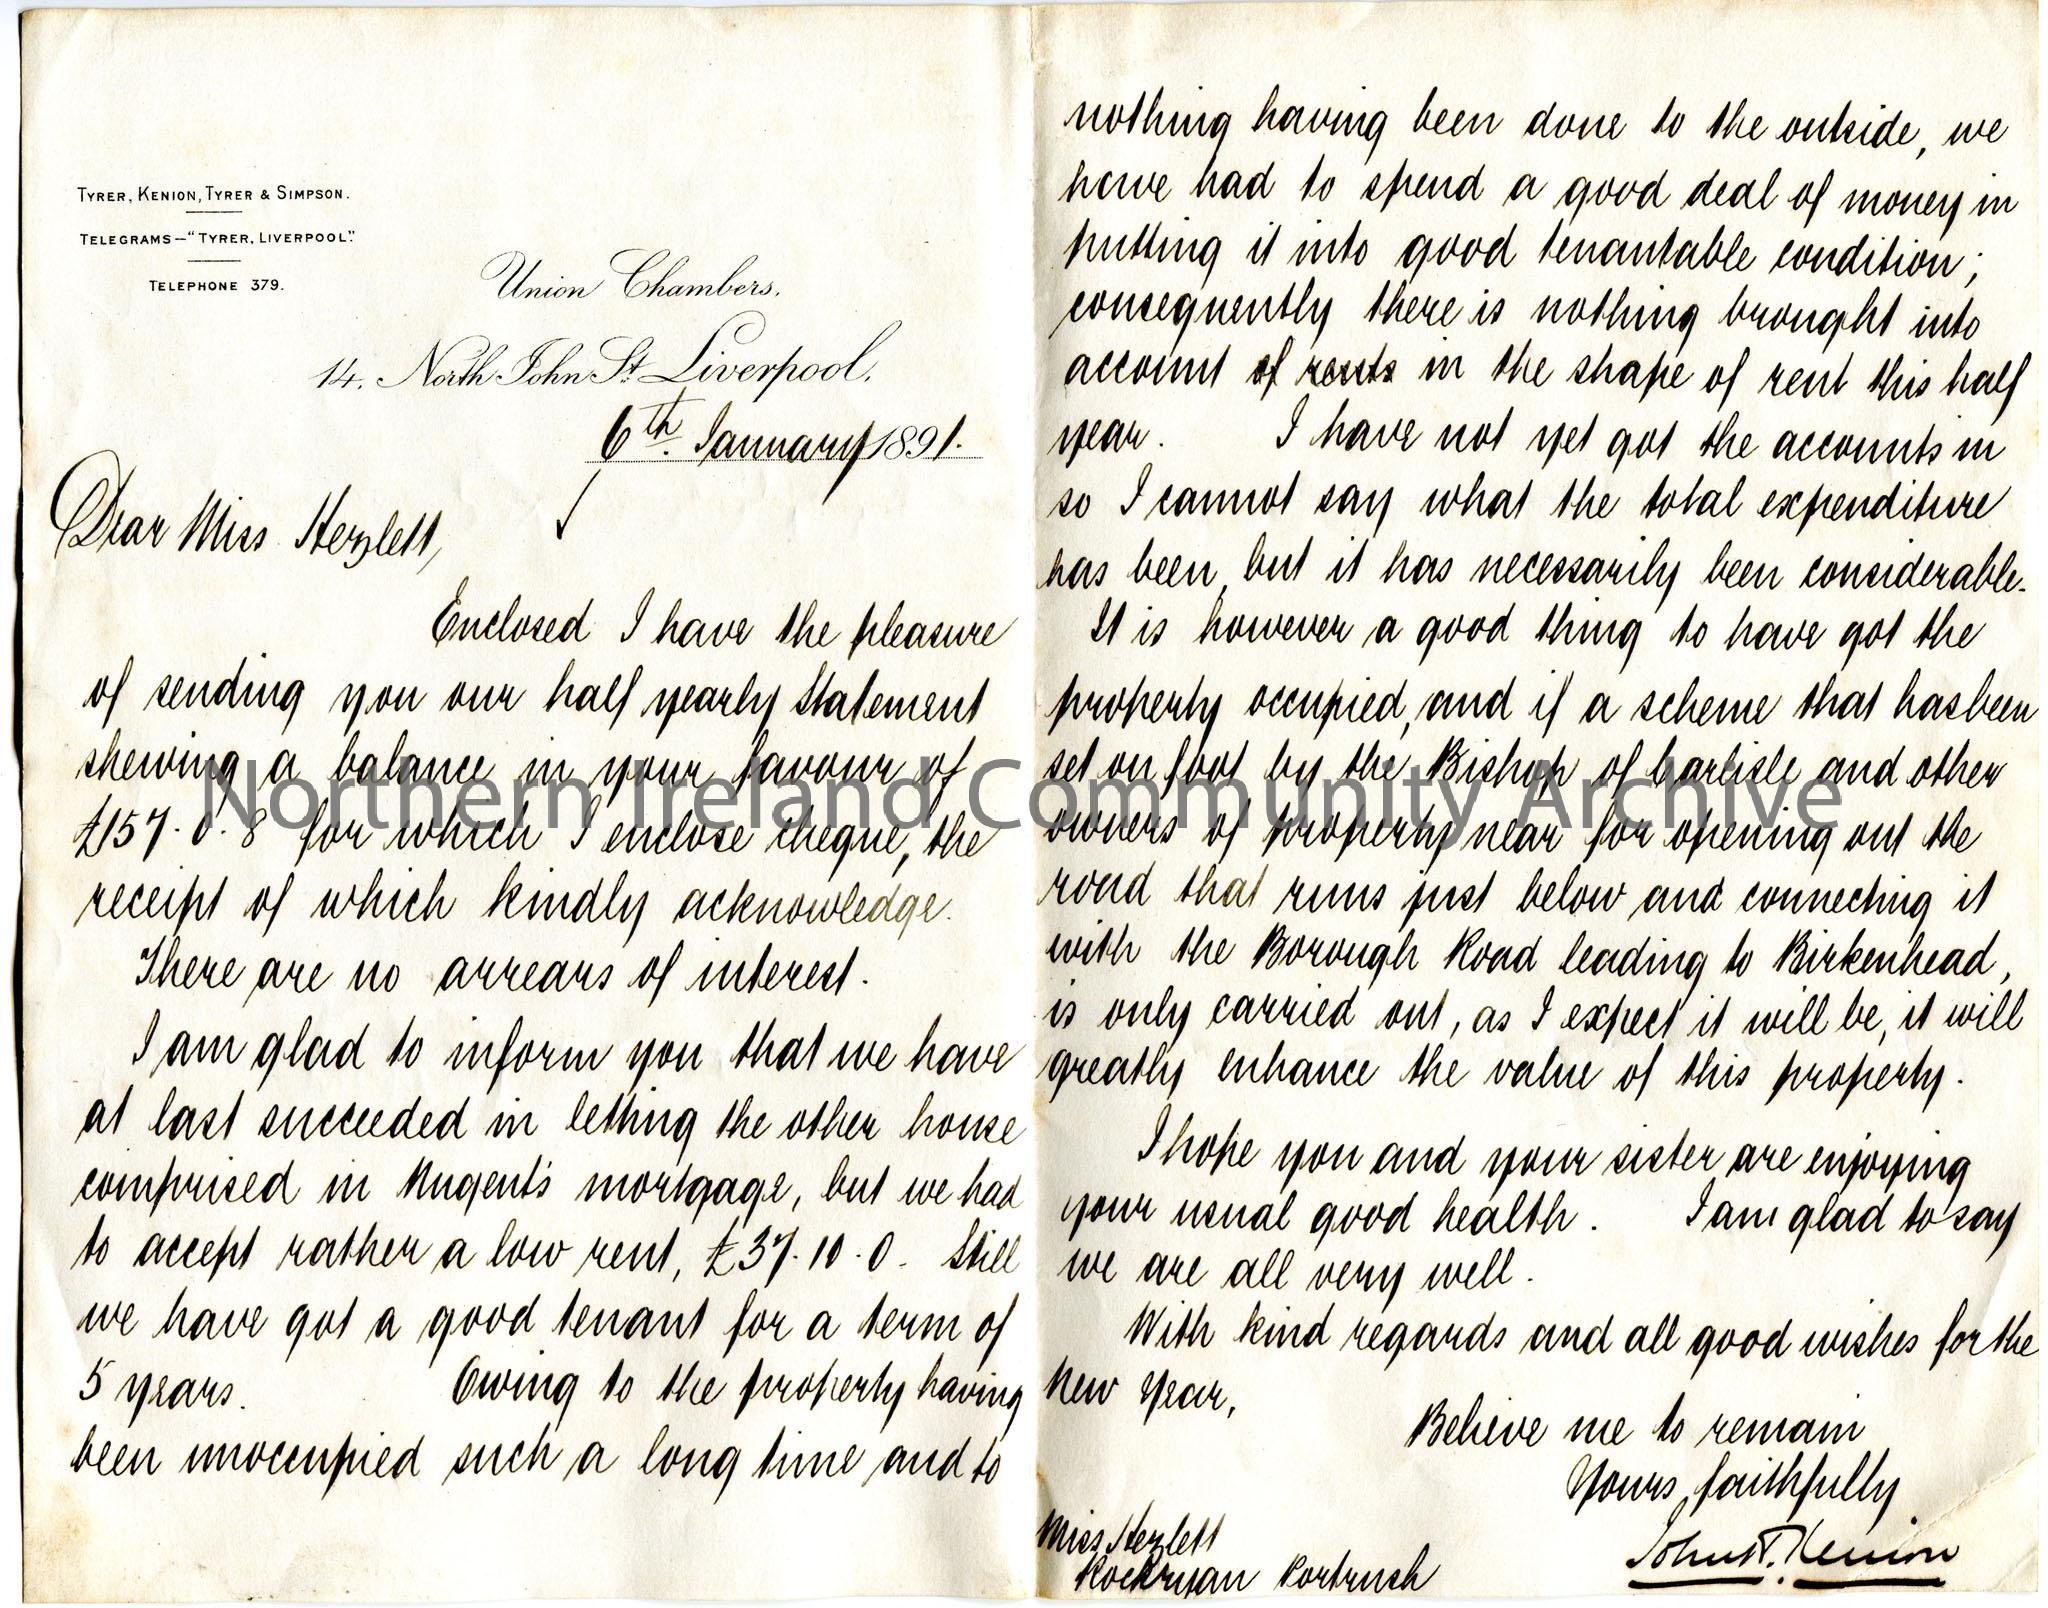 TYRER, KENION, TYRER & SIMPSON.
TELEGRAMS—"TYRER, LIVERPOOL".
TELEPHONE 379.
Union Chambers,
14, North John St. Liverpool,
6th. January 1891.
Dear Miss Hezlett,
Enclosed I have the pleasure
of sending you our half yearly Statement
shewing a balance in your favour of
£157. 0. 8 for which I enclose cheque, the
receipt of which kindly acknowledge.
There are no arrears of interest.
I am glad to inform you that we have
at last succeeded in letting the other house
comprised in Nugent's mortgage, but we had
to accept rather a low rent, £37. 10. 0. Still
we have got a good tenant for a term of
5 years. Owing to the property having
been unoccupied such a long time and to
nothing having been done to the outside, we
have had to spend a good deal of money in
putting it into good tenantable condition;
consequently there is nothing brought into
account of rents in the shape of rent this half
year. I have not yet got the accounts in
so I cannot say what the total expenditure
has been, but it has necessarily been considerable.
It is however a good thing to have got the
property occupied, and if a scheme that has been
set on foot by the Bishop of Carlisle and other
owners of property near for opening out the
road that runs just below and connecting it
with the Borough Road leading to Birkenhead,
is only carried out, as I expect it will be, it will
greatly enhance the value of this property.
I hope you and your sister are enjoying
your usual good health. I am glad to say
we are all very well.
With kind regards and all good wishes for the
New Year,
Believe me to remain
Yours faithfully
John T. Kenion
Miss Hezlett
Rockryan Portrush
Northern Ireland Community Archive